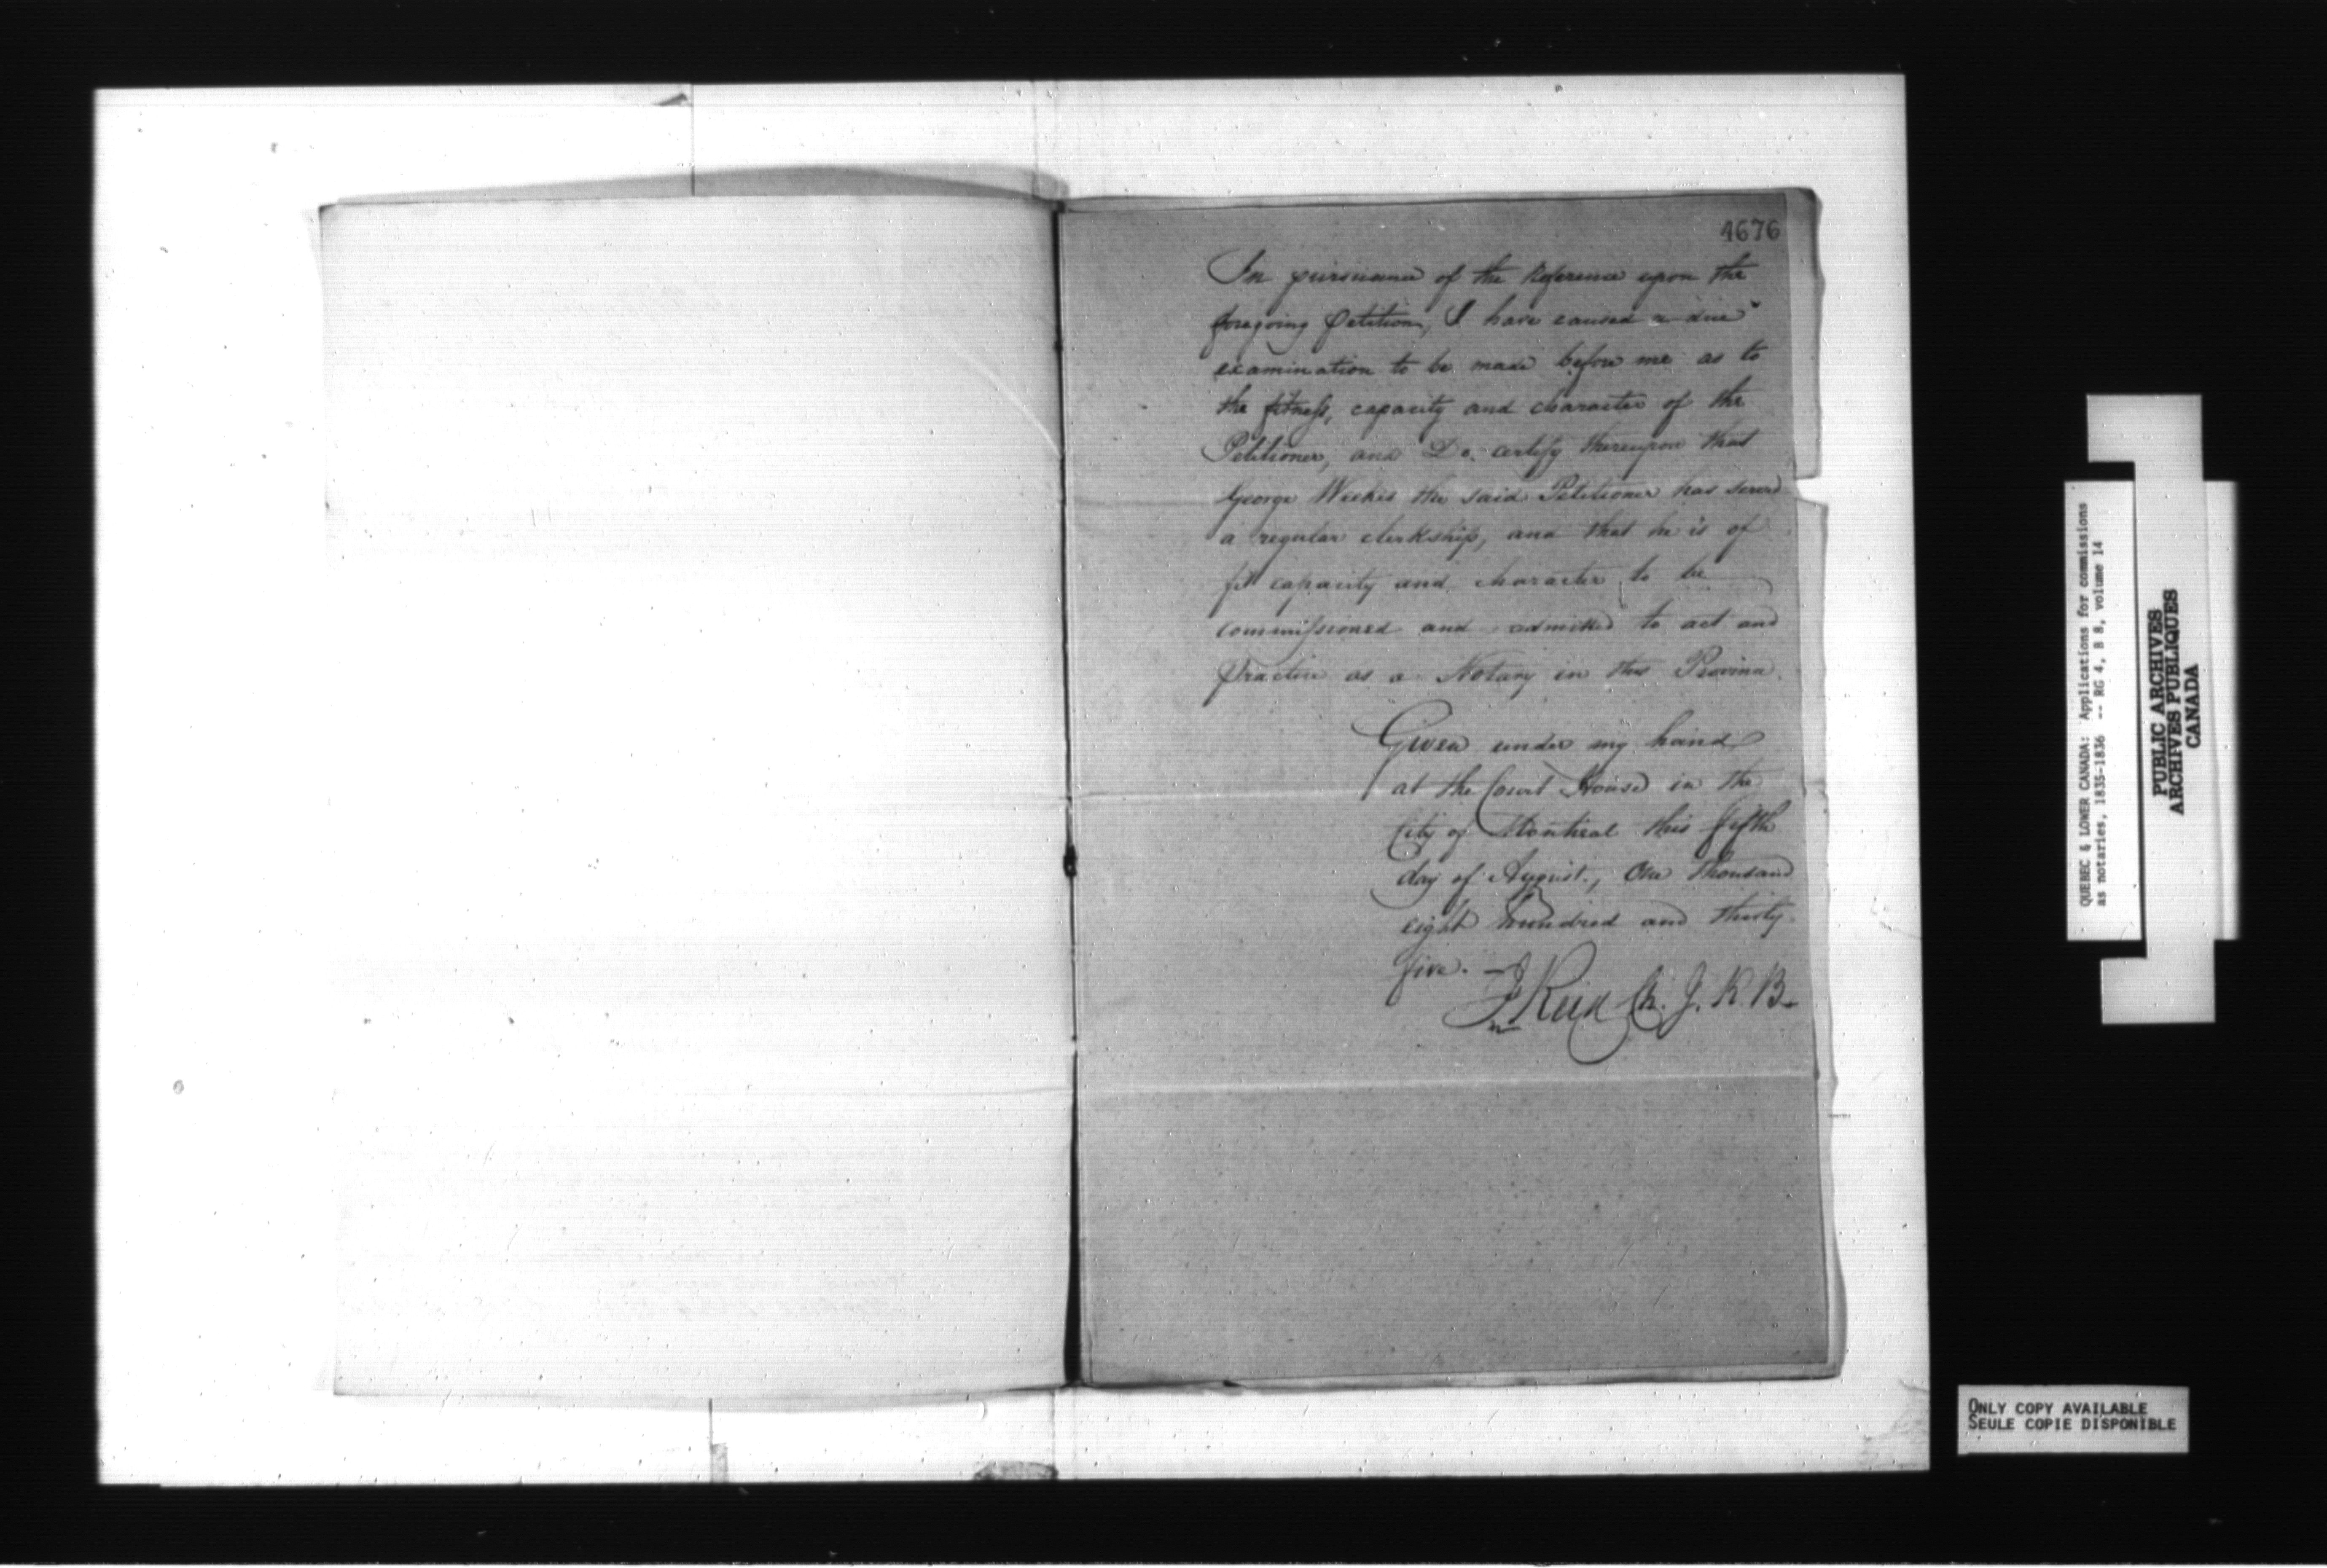 4676
In pursuance of the Reference upon the
foregoing Petition, I have caused a due
examination to be made before me as to
the fitness, capacity and character of the
Petitioner, and Do certify thereupon that
George Weekes the said Petitioner has served
a regular clerkship, and that he is of
fit capacity and character to be
commissioned and admitted to act and
practice as a Notary in this Province.
Given under my hand
at the Court House in the
City of Montreal this fifth
day of August, One thousand
eight hundred and thirty-
five. —
J Reid Ch. J. K. B.
QUEBEC & LOWER CANADA: Applications for commissions
as notaries, 1835-1836 -- RG 4, B 8, volume 14
PUBLIC ARCHIVES
ARCHIVES PUBLIQUES
CANADA
ONLY COPY AVAILABLE
SEULE COPIE DISPONIBLE